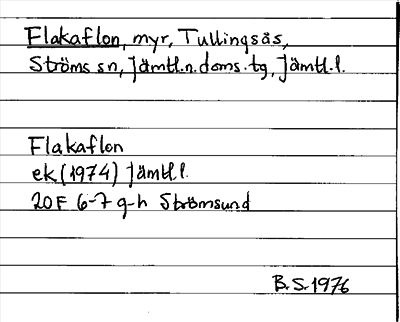 Flakaflon, myr, Tullingsås,
Ströms sn, Jämtl.n.doms.tg, Jämtl.l.
Flakaflon
ek (1974) Jämtl.l.
20F 6-7 g-h Strömsund
B.S. 1976